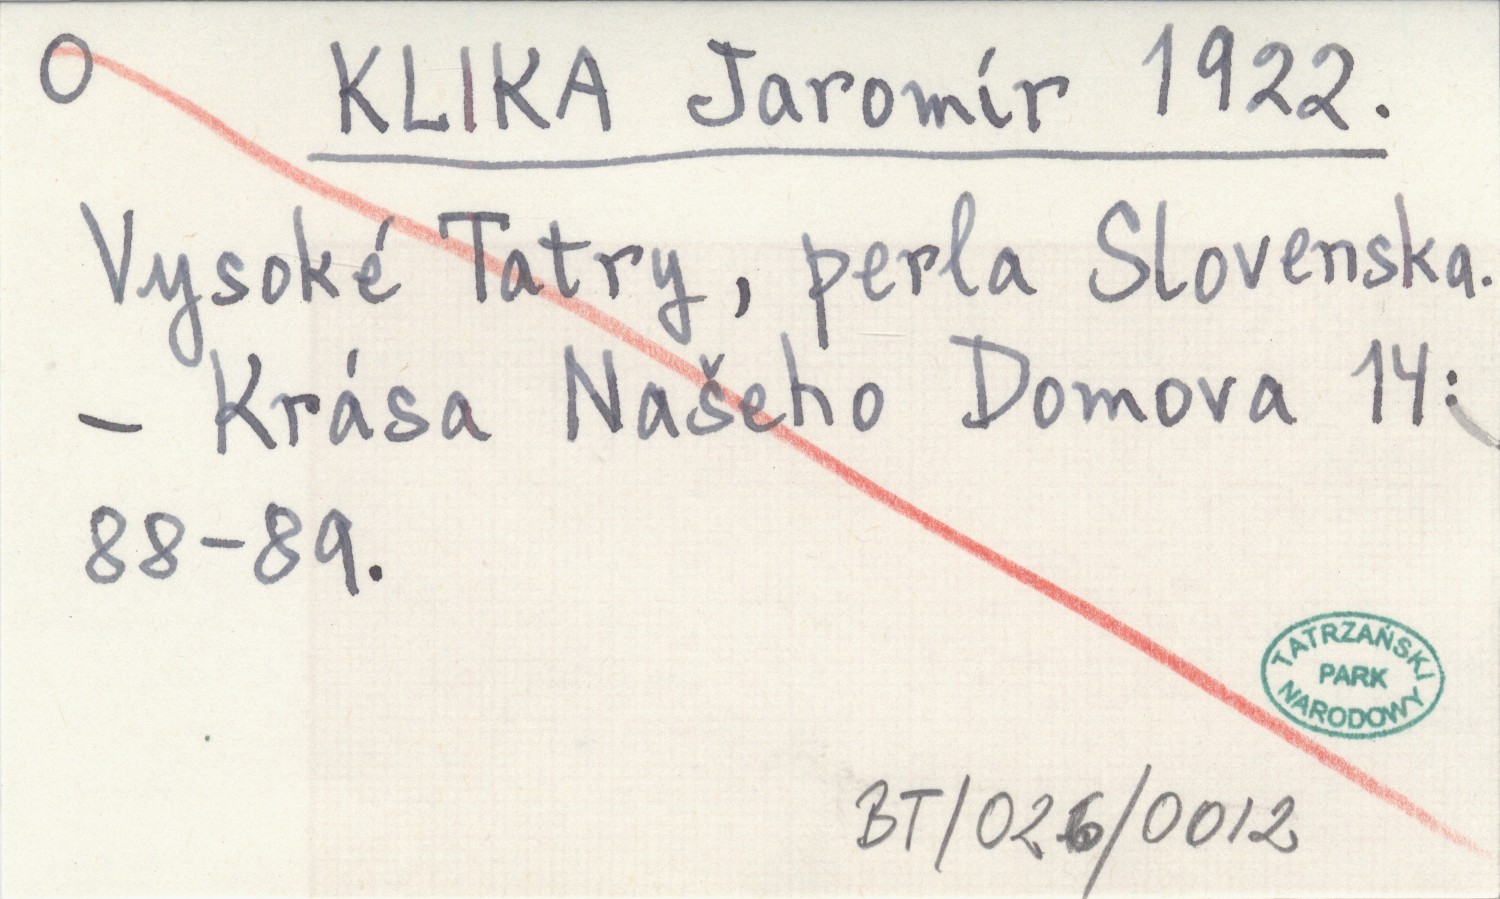 O KLIKA Jaromír 1922.
Vysoké Tatry, perla Slovenska.
- Krása Našeho Domova 14:
88-89.
TATRZAŃSKI
PARK
NARODOWY
BT/026/0012